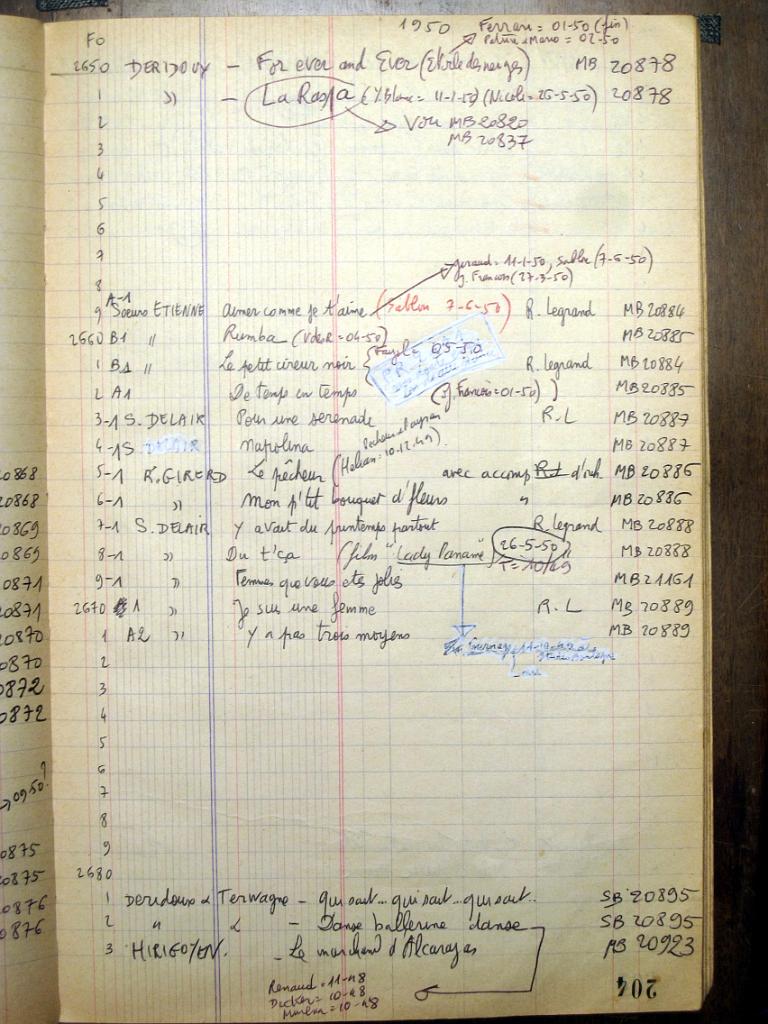 1950 Ferrari = 01-50 (fin)
Patrice & Mario = 02-50
Fo
2650 DERIDOUX - For ever and Ever (Etoile des neiges) MB 20878
1 " - La Raspa (Y. Blanc = 11-1-50) (Nicoli = 26-5-50) 20878
2 Voir MB 20820
MB 20837
3
4
5
6
7
Giraud = 11-1-50, Sablon (7-6-50)
J. Francois (27-3-50)
8
9 A-1 Soeurs ETIENNE Aimer comme je t'aime (Sablon 7-6-50) R. Legrand MB 20884
2660 B1 " Rumba ( = 04-50) MB 20885
1 B1 " Le petit cireur noir 05-50 R. legrand MB 20884
2 A1 De temps en temps (J. Francois = 01-50) MB 20885
3-1 S. DELAIR Pour une serenade R.L MB 20887
4-1 S. DELAIR Napolina MB 20887
5-1 R. GIRERD Le pêcheur (Helian = 10-12-49) avec accomp d'orch. MB 20886
6-1 " Mon p'tit bouquet d'fleurs " MB 20886
7-1 S. DELAIR Y avait du printemps partout R. legrand MB 20888
8-1 " Du t'ça (film "Lady Paname") 26-5-50 " MB 20888
T = 10/49
9-1 " Femmes que vous etes jolies MB 21161
2670 1 " Je suis une femme R.L MB 20889
1 A2 " Y a pas trois moyens MB 20889
2
3
4
5
6
7
8
9
2680
1 Deridoux & Terwagne - qui sait... qui sait... qui sait.. SB 20895
2 " & - Danse ballerine danse SB 20895
3 HIRIGOYEN. - Le marchand d'Alcarazas MB 20923
Renaud = 11-48
Decker = 10-48
10-48
204
0868
20868
20869
0869
0871
0871
20870
0870
0872
0872
0950
0875
0875
0876
0876